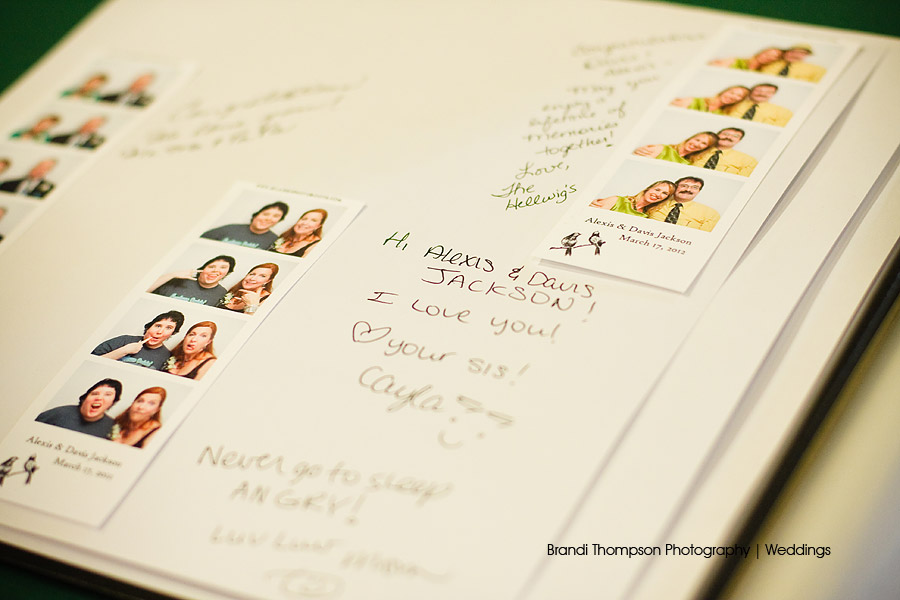 May you
enjoy a
lifetime of
memories
together!
Love,
The
Hellwig's
Alexis & Davis Jackson
March 17, 2012
Hi, ALEXIS & DAVIS
JACKSON!
I love you!
♡ your sis!
Cayla
Never go to sleep
ANGRY!
Luv
Alexis & Davis Jackson
March 17, 2012
Brandi Thompson Photography | Weddings